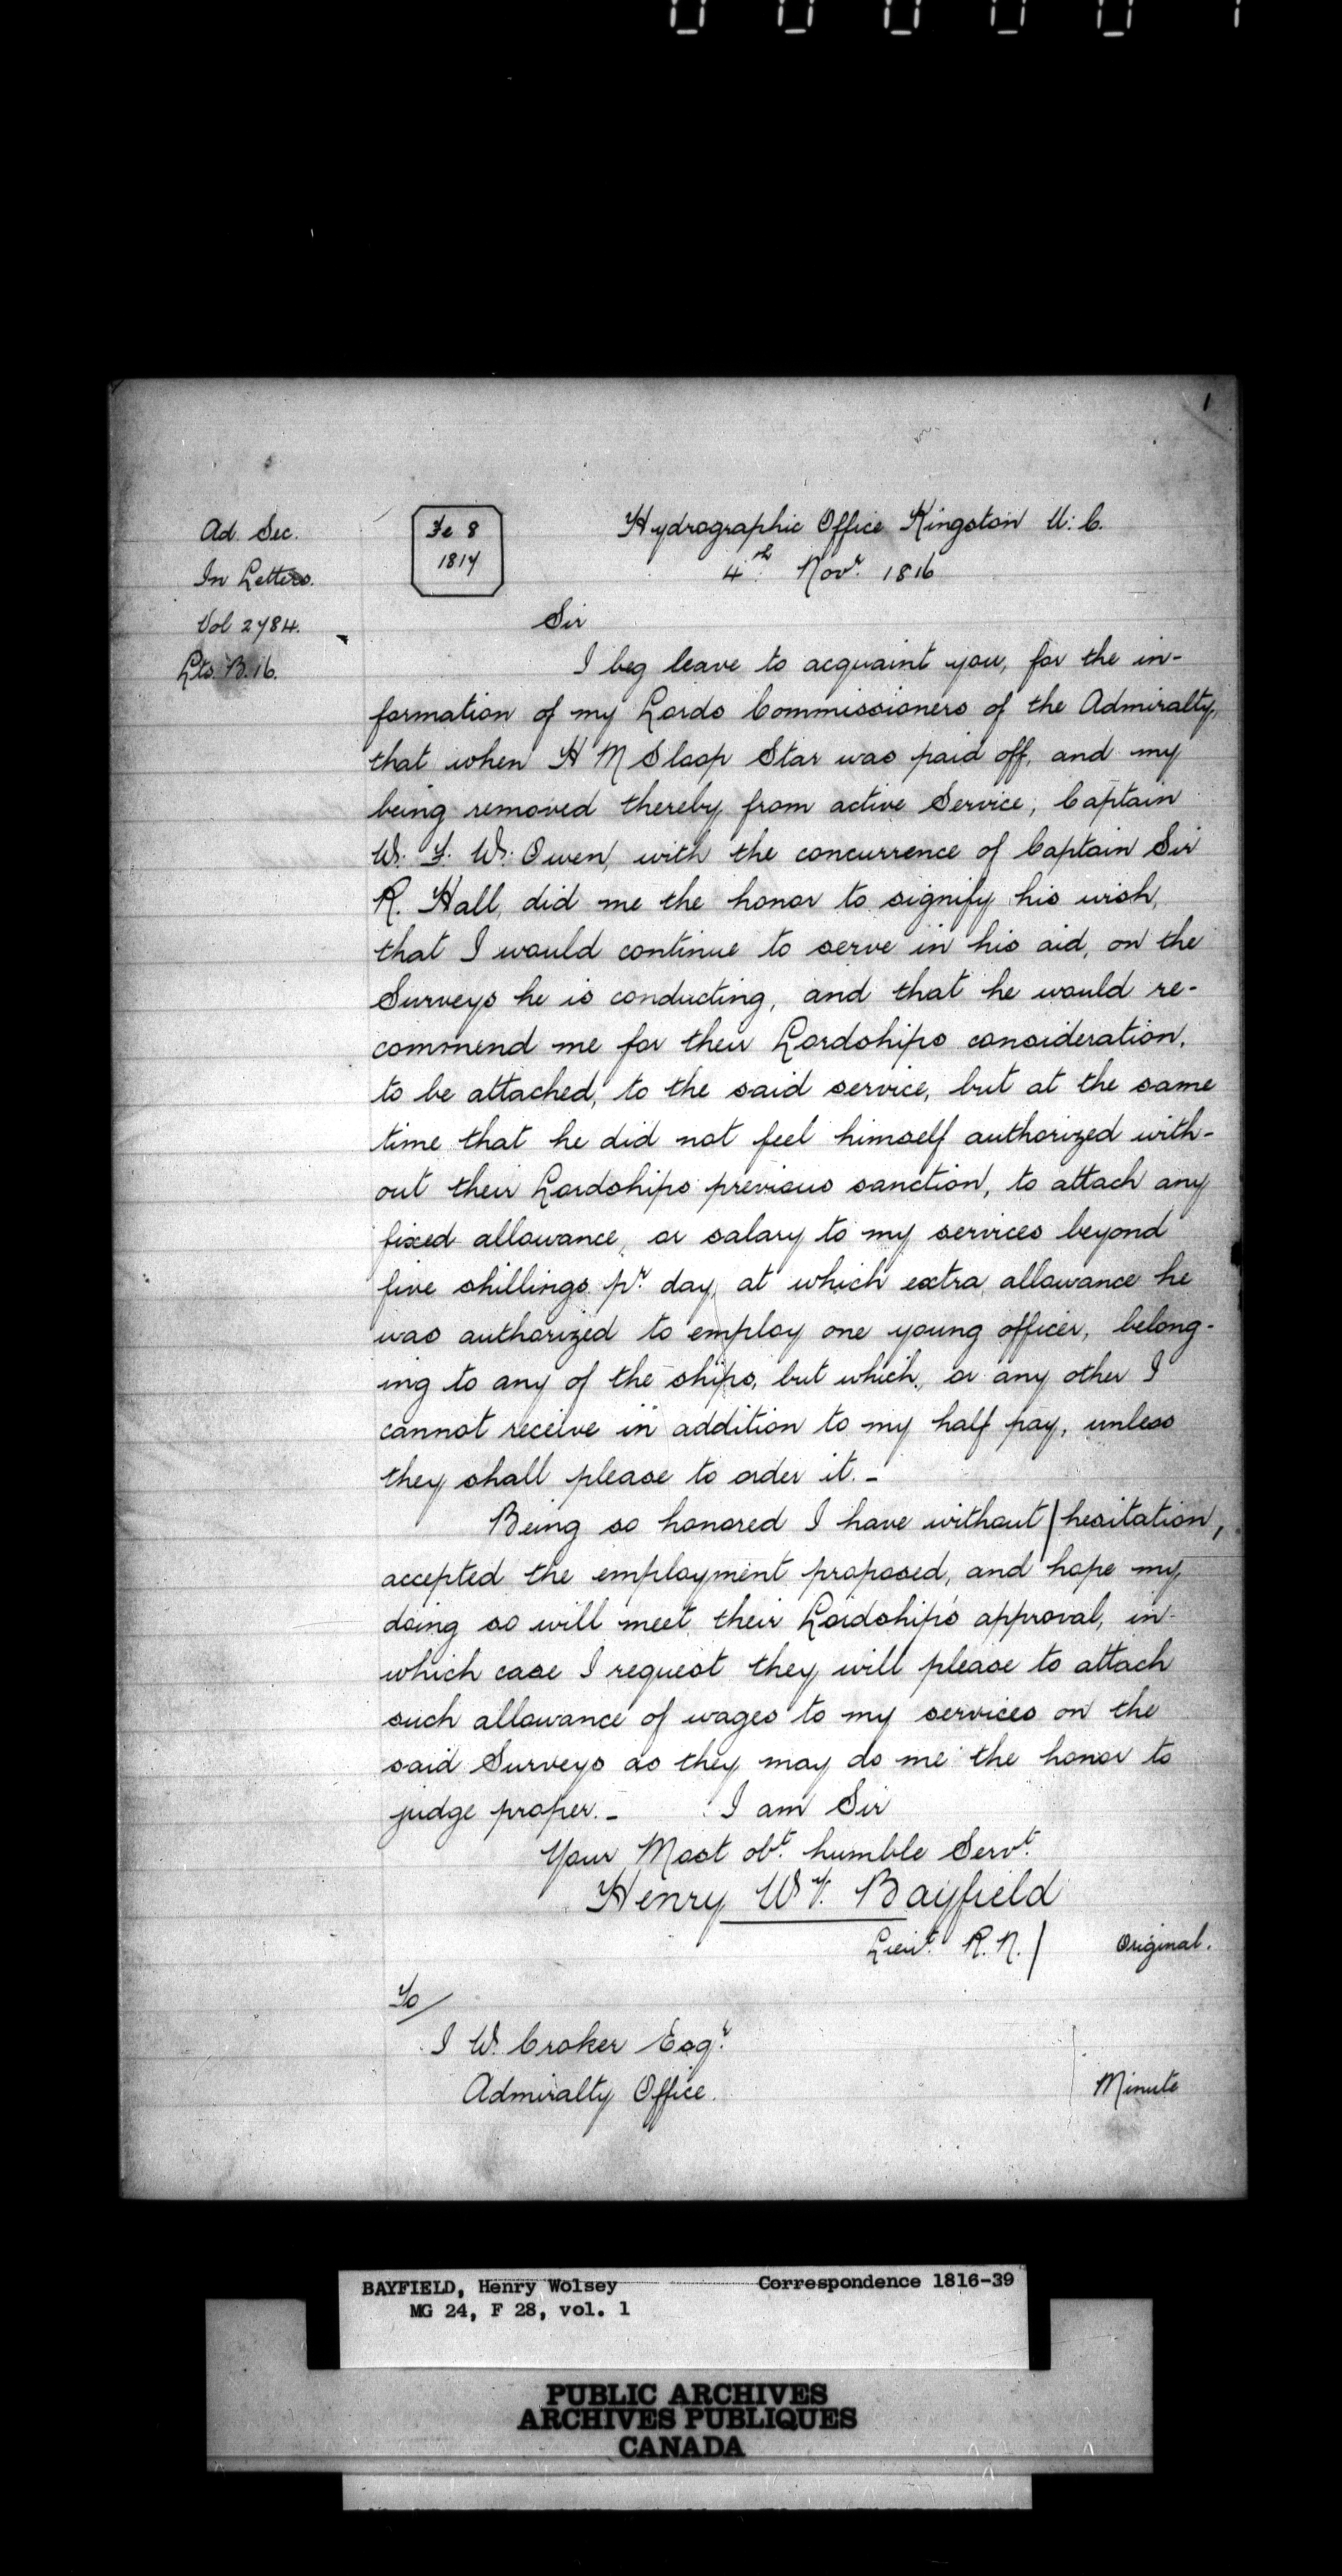 1
Ad. Sec.
In Letters.
Vol 2784.
Lts. B. 16.
Fe 8
1817
Hydrographic Office Kingston U: C.
4th. Novr. 1816
Sir
I beg leave to acquaint you, for the in-
formation of my Lords Commissioners of the Admiralty,
that when H M Sloop Star was paid off, and my
being removed thereby from active Service, Captain
W. F. W. Owen, with the concurrence of Captain Sir
R. Hall, did me the honor to signify his wish,
that I would continue to serve in his aid, on the
Surveys he is conducting, and that he would re-
commend me for their Lordships consideration,
to be attached, to the said service, but at the same
time that he did not feel himself authorized with-
out their Lordships previous sanction, to attach any
fixed allowance, or salary to my services beyond
five shillings pr. day, at which extra allowance he
was authorized to employ one young officer, belong-
ing to any of the ships, but which, or any other I
cannot receive in addition to my half pay, unless
they shall please to order it. -
Being so honored I have without / hesitation,
accepted the employment proposed, and hope my
doing so will meet their Lordship's approval, in
which case I request they will please to attach
such allowance of wages to my services on the
said Surveys as they may do me the honor to
judge proper. - I am Sir
Your Most obt. humble Servt.
Henry W. Bayfield
Lieut. R. N. /
Original.
To /
I W. Croker Esqr.
Admiralty Office.
Minute
BAYFIELD, Henry Wolsey Correspondence 1816-39
MG 24, F 28, vol. 1
PUBLIC ARCHIVES
ARCHIVES PUBLIQUES
CANADA